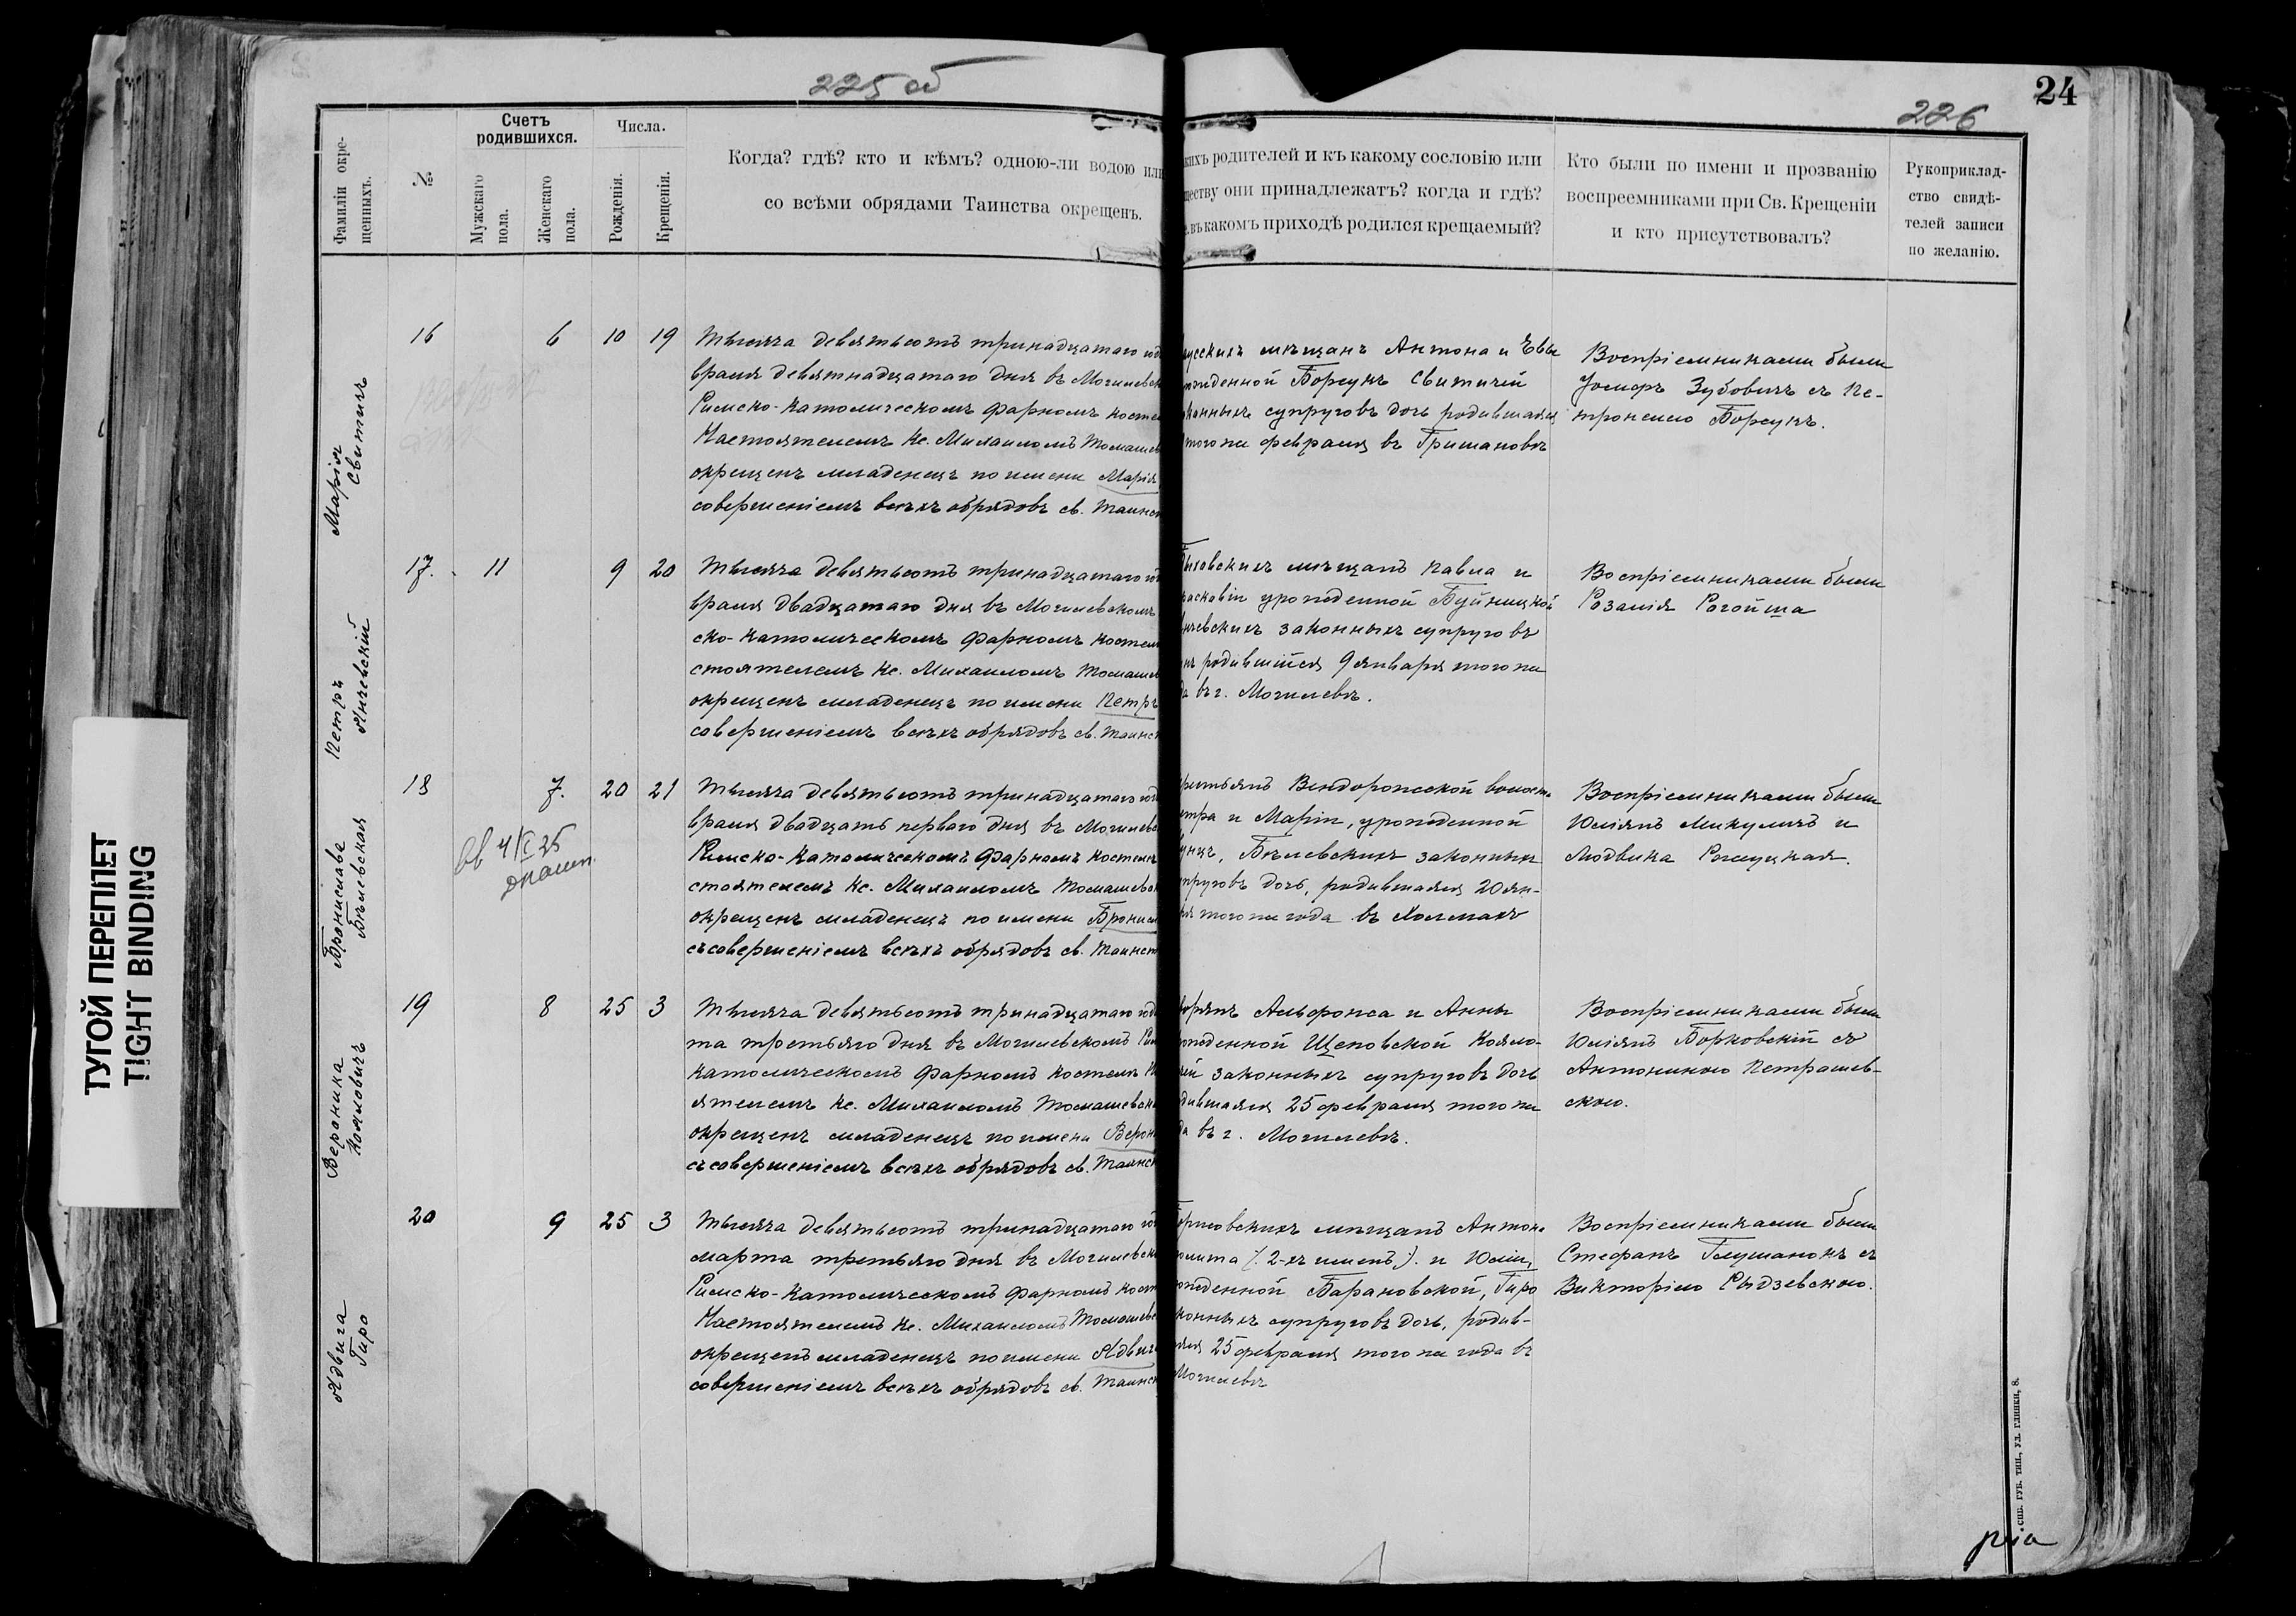 225 об
24
226
ТУГОЙ ПЕРЕПЛЕТ
TIGHT BINDING
Фамиліи окре-
щенныхъ.
№
Счетъ
родившихся.
Мужскаго
пола.
Женскаго
пола.
Числа.
Рожденія.
Крещенія.
Когда? гдѣ? кто и кѣмъ? одною-ли водою или
со всѣми обрядами Таинства окрещенъ.
кихъ родителей и къ какому сословію или
ществу они принадлежатъ? когда и гдѣ?
въ какомъ приходѣ родился крещаемый?
Кто были по имени и прозванію
воспреемниками при Св. Крещеніи
и кто присутствовалъ?
Рукоприклад-
ство свидѣ-
телей записи
по желанію.
Марія
Свитичъ
16
6
10
19
Тысяча девятьсотъ тринадцатаго год
враля девятнадцатаго дня въ Могилевск
Римско-Католическомъ фарномъ косте
Настоятелемъ Кс. Михаиломъ Томашев
окрещенъ младенецъ по имени Марія
совершеніемъ всѣхъ обрядовъ св. Таинс
усскихъ мѣщанъ Антона и Евы
рожденной Борсукъ Свитичей
конныхъ супруговъ дочь родившаяся
того же февраля въ Гришановѣ
Воспріемниками были
Іосифъ Зубовичъ съ Пе-
тронелею Борсукъ.
Петръ
Янчевскій
17.
11
9
20
Тысяча девятьсотъ тринадцатаго го
враля двадцатаго дня въ Могилевскомъ
ско-Католическомъ фарномъ костел
стоятелемъ Кс. Михаиломъ Томашев
окрещенъ младенецъ по имени Петръ
совершеніемъ всѣхъ обрядовъ св. Таинс
Быховскихъ мѣщанъ Павла и
раскавіи урожденной Буйницкой
нчевскихъ законныхъ супруговъ
нъ родившійся 9 января того же
да въ г. Могилевѣ.
Воспріемниками были
Розалія Рогойша
Бронислава
Бѣлевская
18
7.
20
21
4/X 25
Тысяча девятьсотъ тринадцатаго год
враля двадцать перваго дня въ Могилевс
Римско-Католическомъ фарномъ костел
стоятелемъ Кс. Михаиломъ Томашевс
окрещенъ младенецъ по имени Бронисл
съ совершеніемъ всѣхъ обрядовъ св. Таинст
рестьянъ Вендорожской волости
етра и Маріи, урожденной
Бѣлевскихъ законныхъ
пруговъ дочь, родившаяся 20 ян-
ря того же года въ Холмахъ
Воспріемниками были
Юліянъ Микуличъ и
Людвика
Вероника
Коялловичъ
19
8
25
3
Тысяча девятьсотъ тринадцатаго год
та третьяго дня въ Могилевскомъ Рим
Католическомъ фарномъ костелѣ Н
ятелемъ Кс. Михаиломъ Томашевск
окрещенъ младенецъ по имени Верон
съ совершеніемъ всѣхъ обрядовъ св. Таинс
ворянъ Альфонса и Анны
рожденной Щеповской Коялло-
чей законныхъ супруговъ дочь
дившаяся 25 февраля того же
да въ г. Могилевѣ.
Воспріемниками были
Юліянъ Борковскій съ
Антониною Петрашев-
скою.
Ядвига
Гиро
20
9
25
3
Тысяча девятьсотъ тринадцатаго го
марта третьяго дня въ Могилевск
Римско-Католическомъ фарномъ кост
Настоятелемъ Кс. Михаиломъ Томашевс
окрещенъ младенецъ по имени Ядвиг
совершеніемъ всѣхъ обрядовъ св. Таинс
Борисовскихъ мѣщанъ Антона
полита /: 2-хъ именъ :/ и Юліи,
рожденной Барановской, Гиро
конныхъ супруговъ дочь, родив-
аяся 25 февраля того же года въ
Могилевѣ
Воспріемниками были
Стефанъ Глушанокъ съ
Викторіею Рыдзевскою.
СПБ. ГУБ. ТИП., УЛ. ГЛИНКИ, 8.